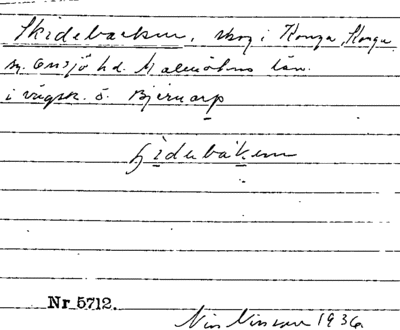 Skidebacken, skog i Konga, Konga
sn. Onsjö hd. Malmöhus län.
i vägsk. ö. Bjärnarp
Nr 5712.
Nils Nilsson 1936.